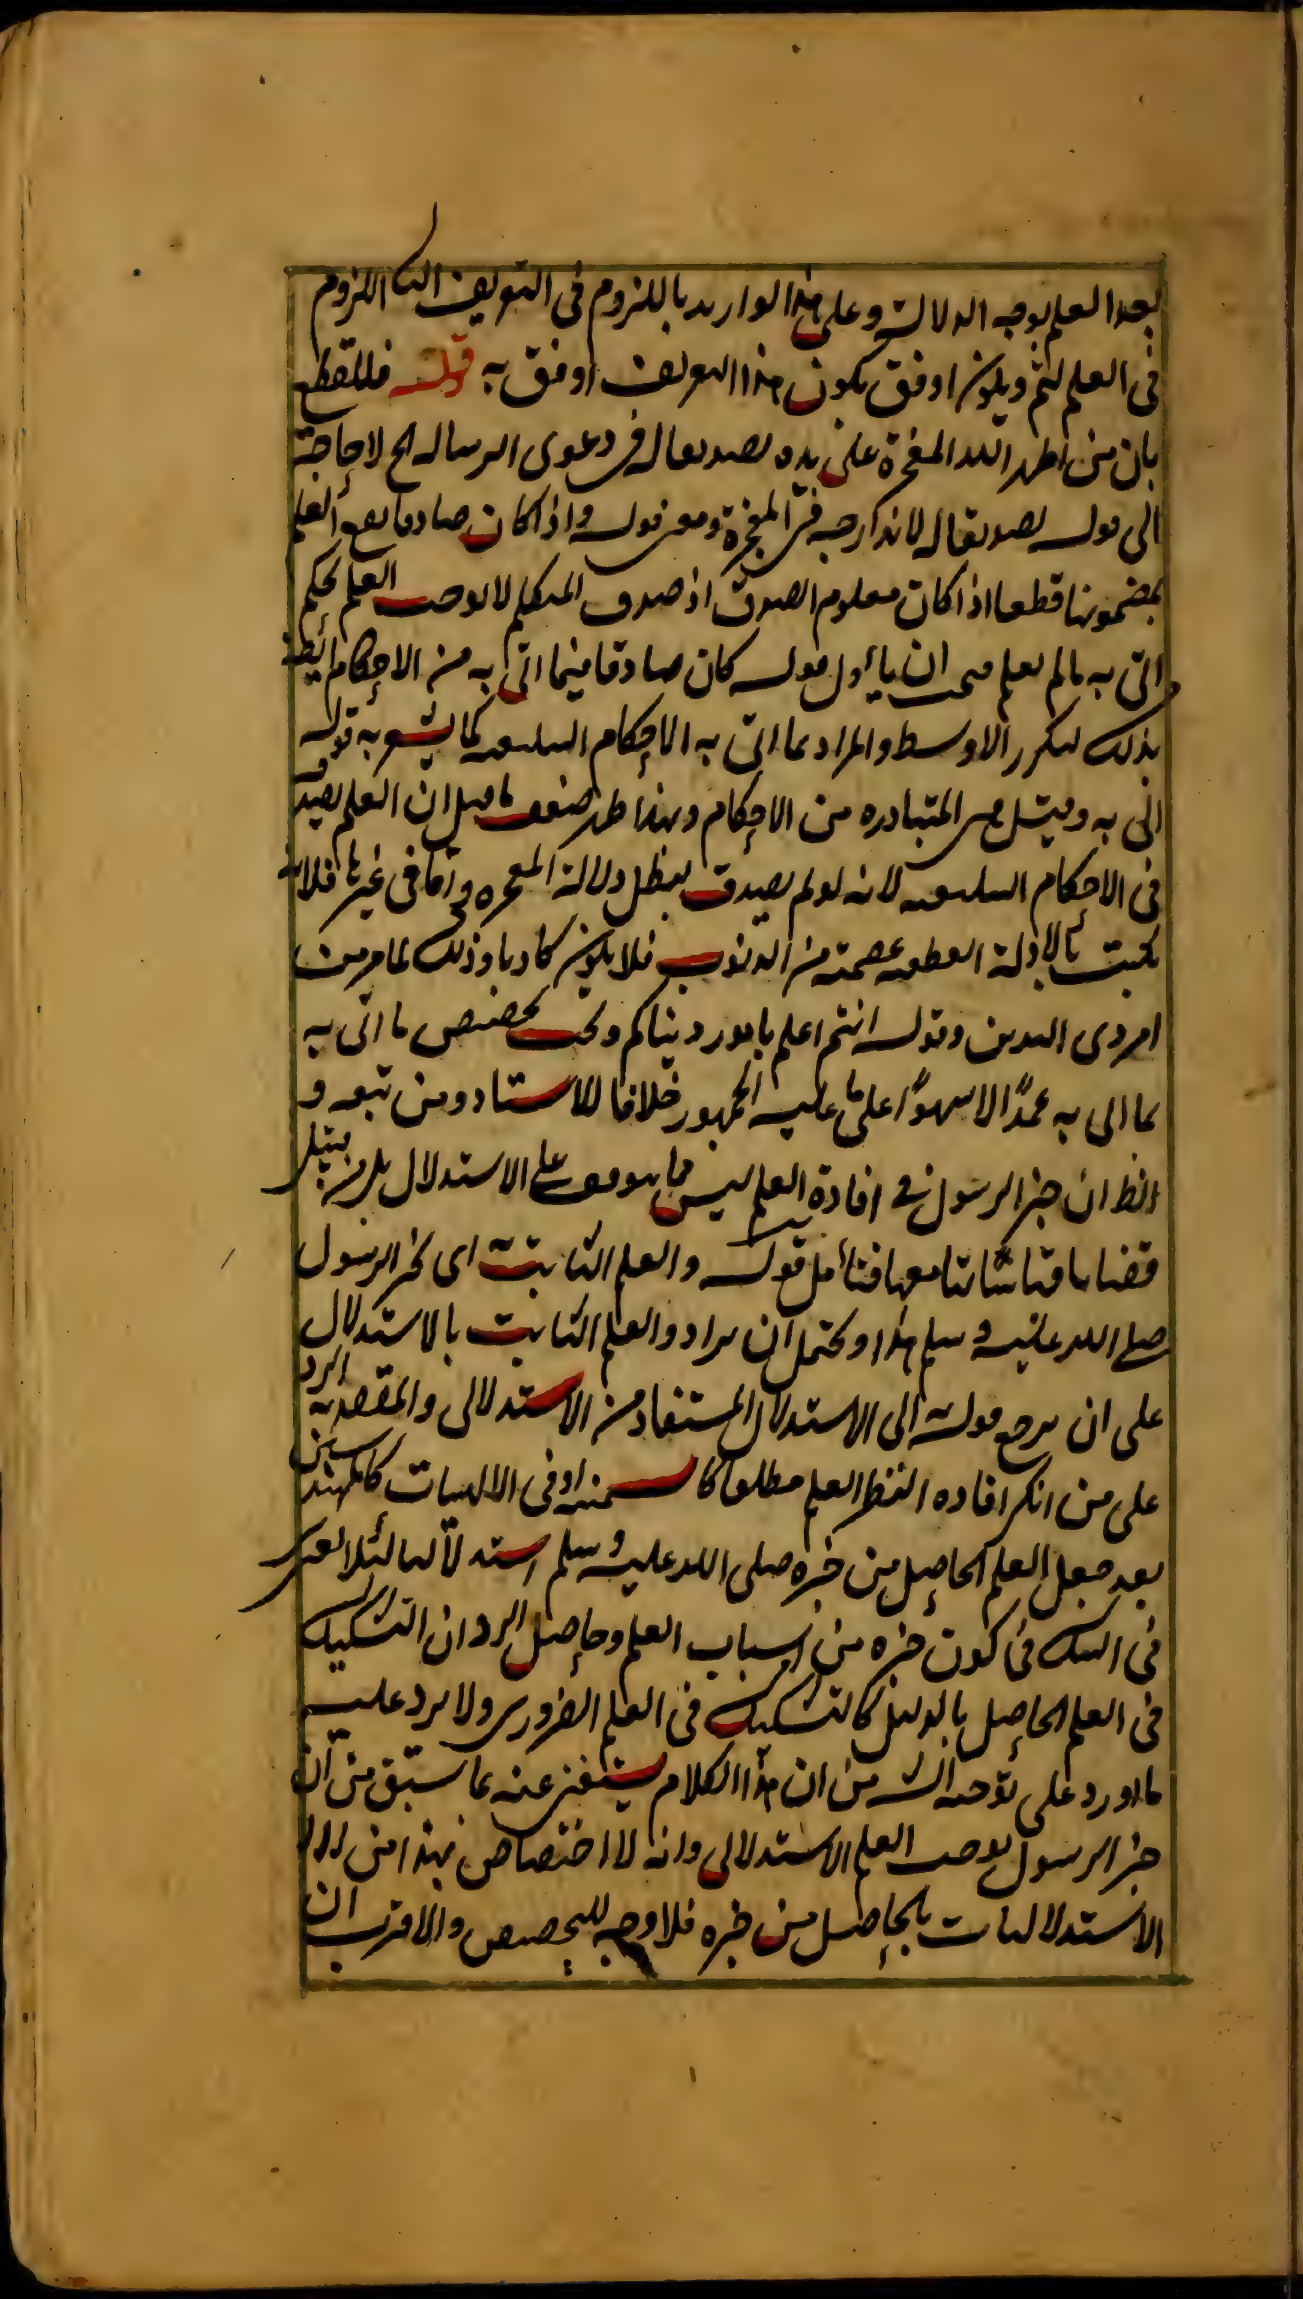 بعد العلم بوجه الدلالة وعلى هذا لو اريد باللزوم فى التعريف الثانى اللزوم
فى العلم لتم ويكون اوفق يكون هذا التعريف اوفق به قوله فللقطع
بان من اظهر الله المعجزة على يده تصديقا له فى دعوى الرسالة الخ لا حاجة
الى قوله تصديقا له لاندراجه فى المعجزة ومعنى قوله واذا كان صادقا يقع العلم
بمضمونها قطعا اذا كان معلوم الصدق اذ صدق المتكلم لا يوجب العلم بحكم
اتى به مالم يعلم فيجب ان يأول قوله كان صادقا فيما اتى به من الاحكام ايضا
بذلك ليتكرر الاوسط والمراد بما اتى به الاحكام التبليغية كما يشعر به قوله
اتى به وقيل هى المتبادرة من الاحكام وبهذا ظهر ضعف ما قيل ان العلم بصدقه
فى الاحكام التبليغية لانه لو لم يصدق لبطل دلالة المعجزة واما فى غيرها فلانه
ثبت بالادلة القطعية عصمته من الذنوب فلا يكون كاذبا وذلك لما مر من
امر ذى اليدين وقوله انتم اعلم بامور دنياكم ويجب تخصيص ما اتى به
بما اتى به عمدًا لا سهوًا على ما عليه الجمهور خلافا للاستاد ومن تبعه و
انظر ان خبر الرسول فى افادة العلم ليس مما يتوقف على الاستدلال بل من قبيل
قضايا قياساتها معها فتأمل قوله والعلم الثابت به اى بخبر الرسول
صلى الله عليه وسلم هذا ويحتمل ان يراد والعلم الثابت بالاستدلال
على ان يرجع قوله به الى الاستدلال المستفاد من الاستدلالى والمقصد به الرد
على من انكر افادة النظر العلم مطلقا كالسمنية او فى الالهيات كالمهندسين
بعد جعل العلم الحاصل من خبره صلى الله عليه وسلم استدلاليا لئلا يقع
فى الشك فى كون خبره من اسباب العلم وحاصل الرد ان التشكيك
فى العلم الحاصل بالدليل كالتشكيك فى العلم الضرورى ولا يرد عليه
ما اورد على توجيه الش من ان هذا الكلام يستغنى عنه بما سبق من ان
خبر الرسول يوجب العلم الاستدلالى وانه لا اختصاص بهذا من
الاستدلاليات بالحاصل من خبره فلا وجه للتخصيص والاقرب ان